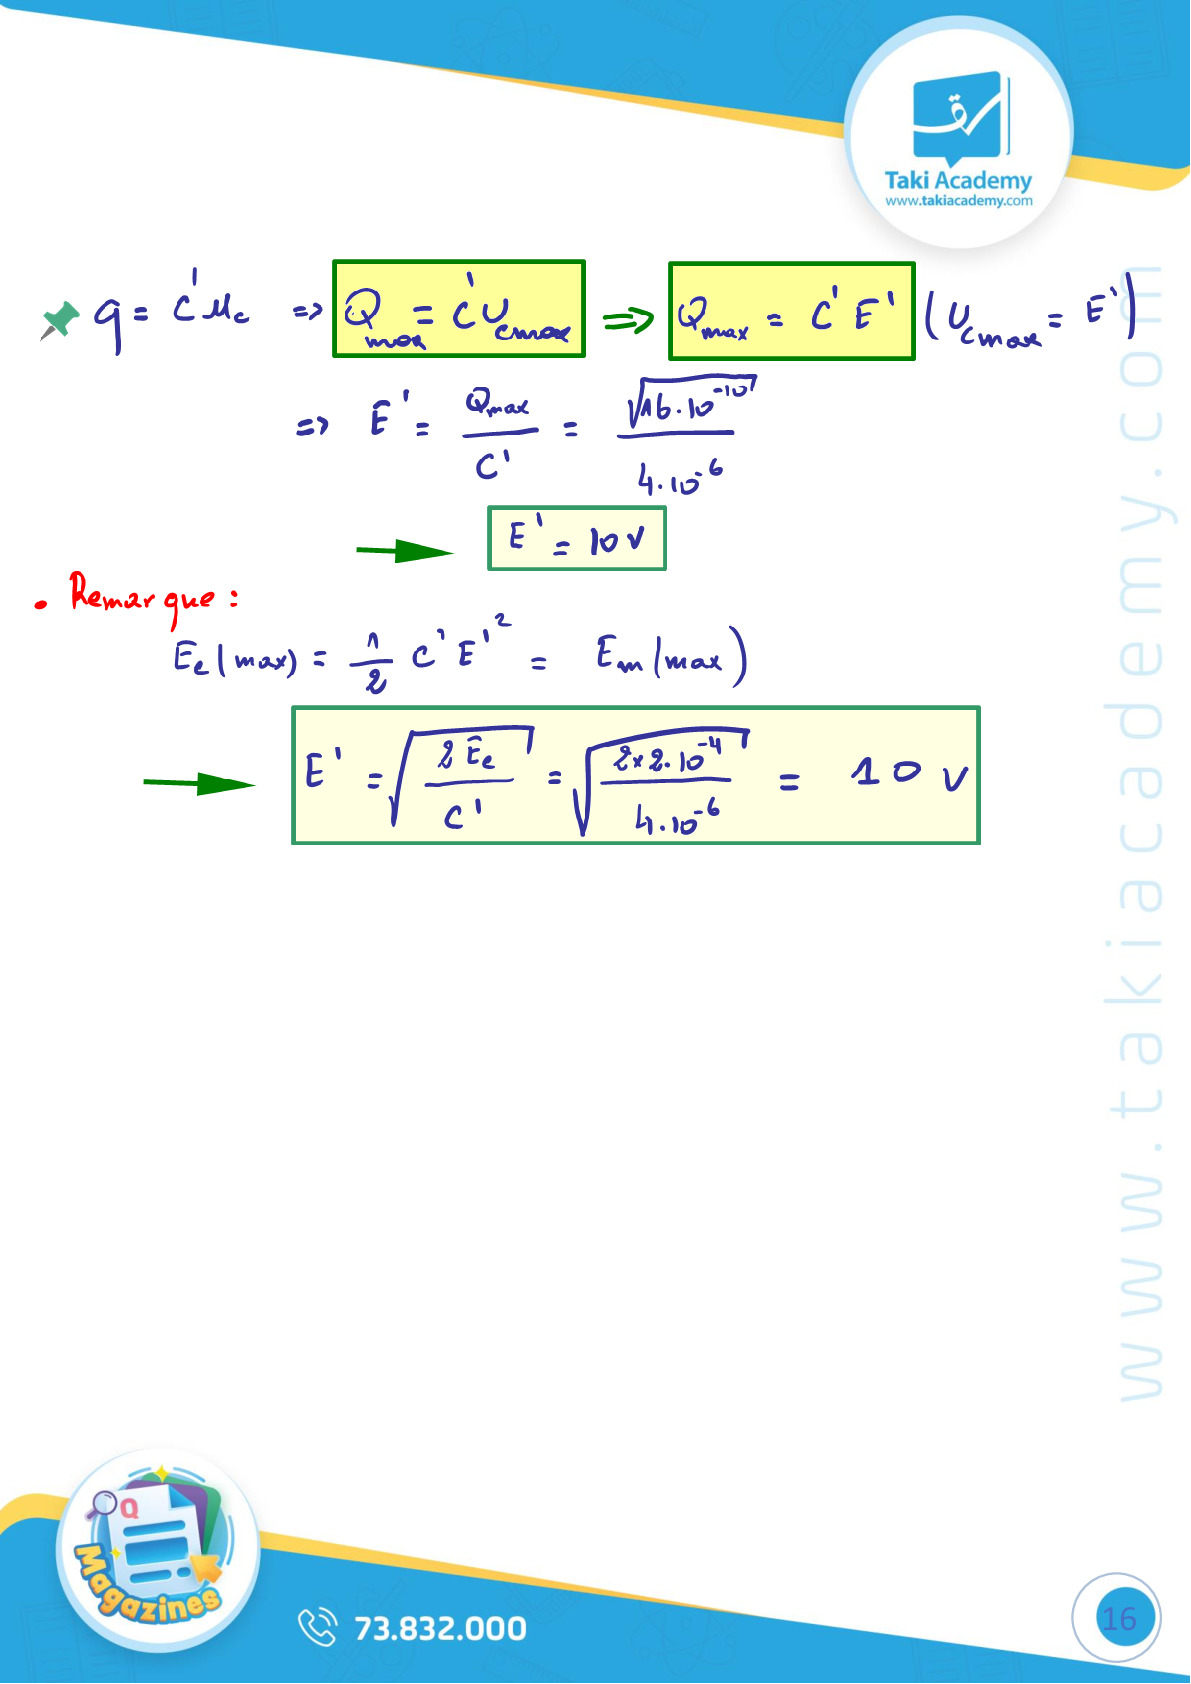 Taki Academy
www.takiacademy.com
q = C' uc => Qmax = C' Ucmax => Qmax = C' E' (Ucmax = E')
=> E' = Qmax / C' = √16.10^-10 / 4.10^-6
E' = 10 V
• Remarque :
Ee(max) = 1/2 C' E'^2 = Em(max)
E' = √(2 Ee / C') = √(2x2.10^-4 / 4.10^-6) = 10 V
www.takiacademy.com
Q
Magazines
73.832.000
16